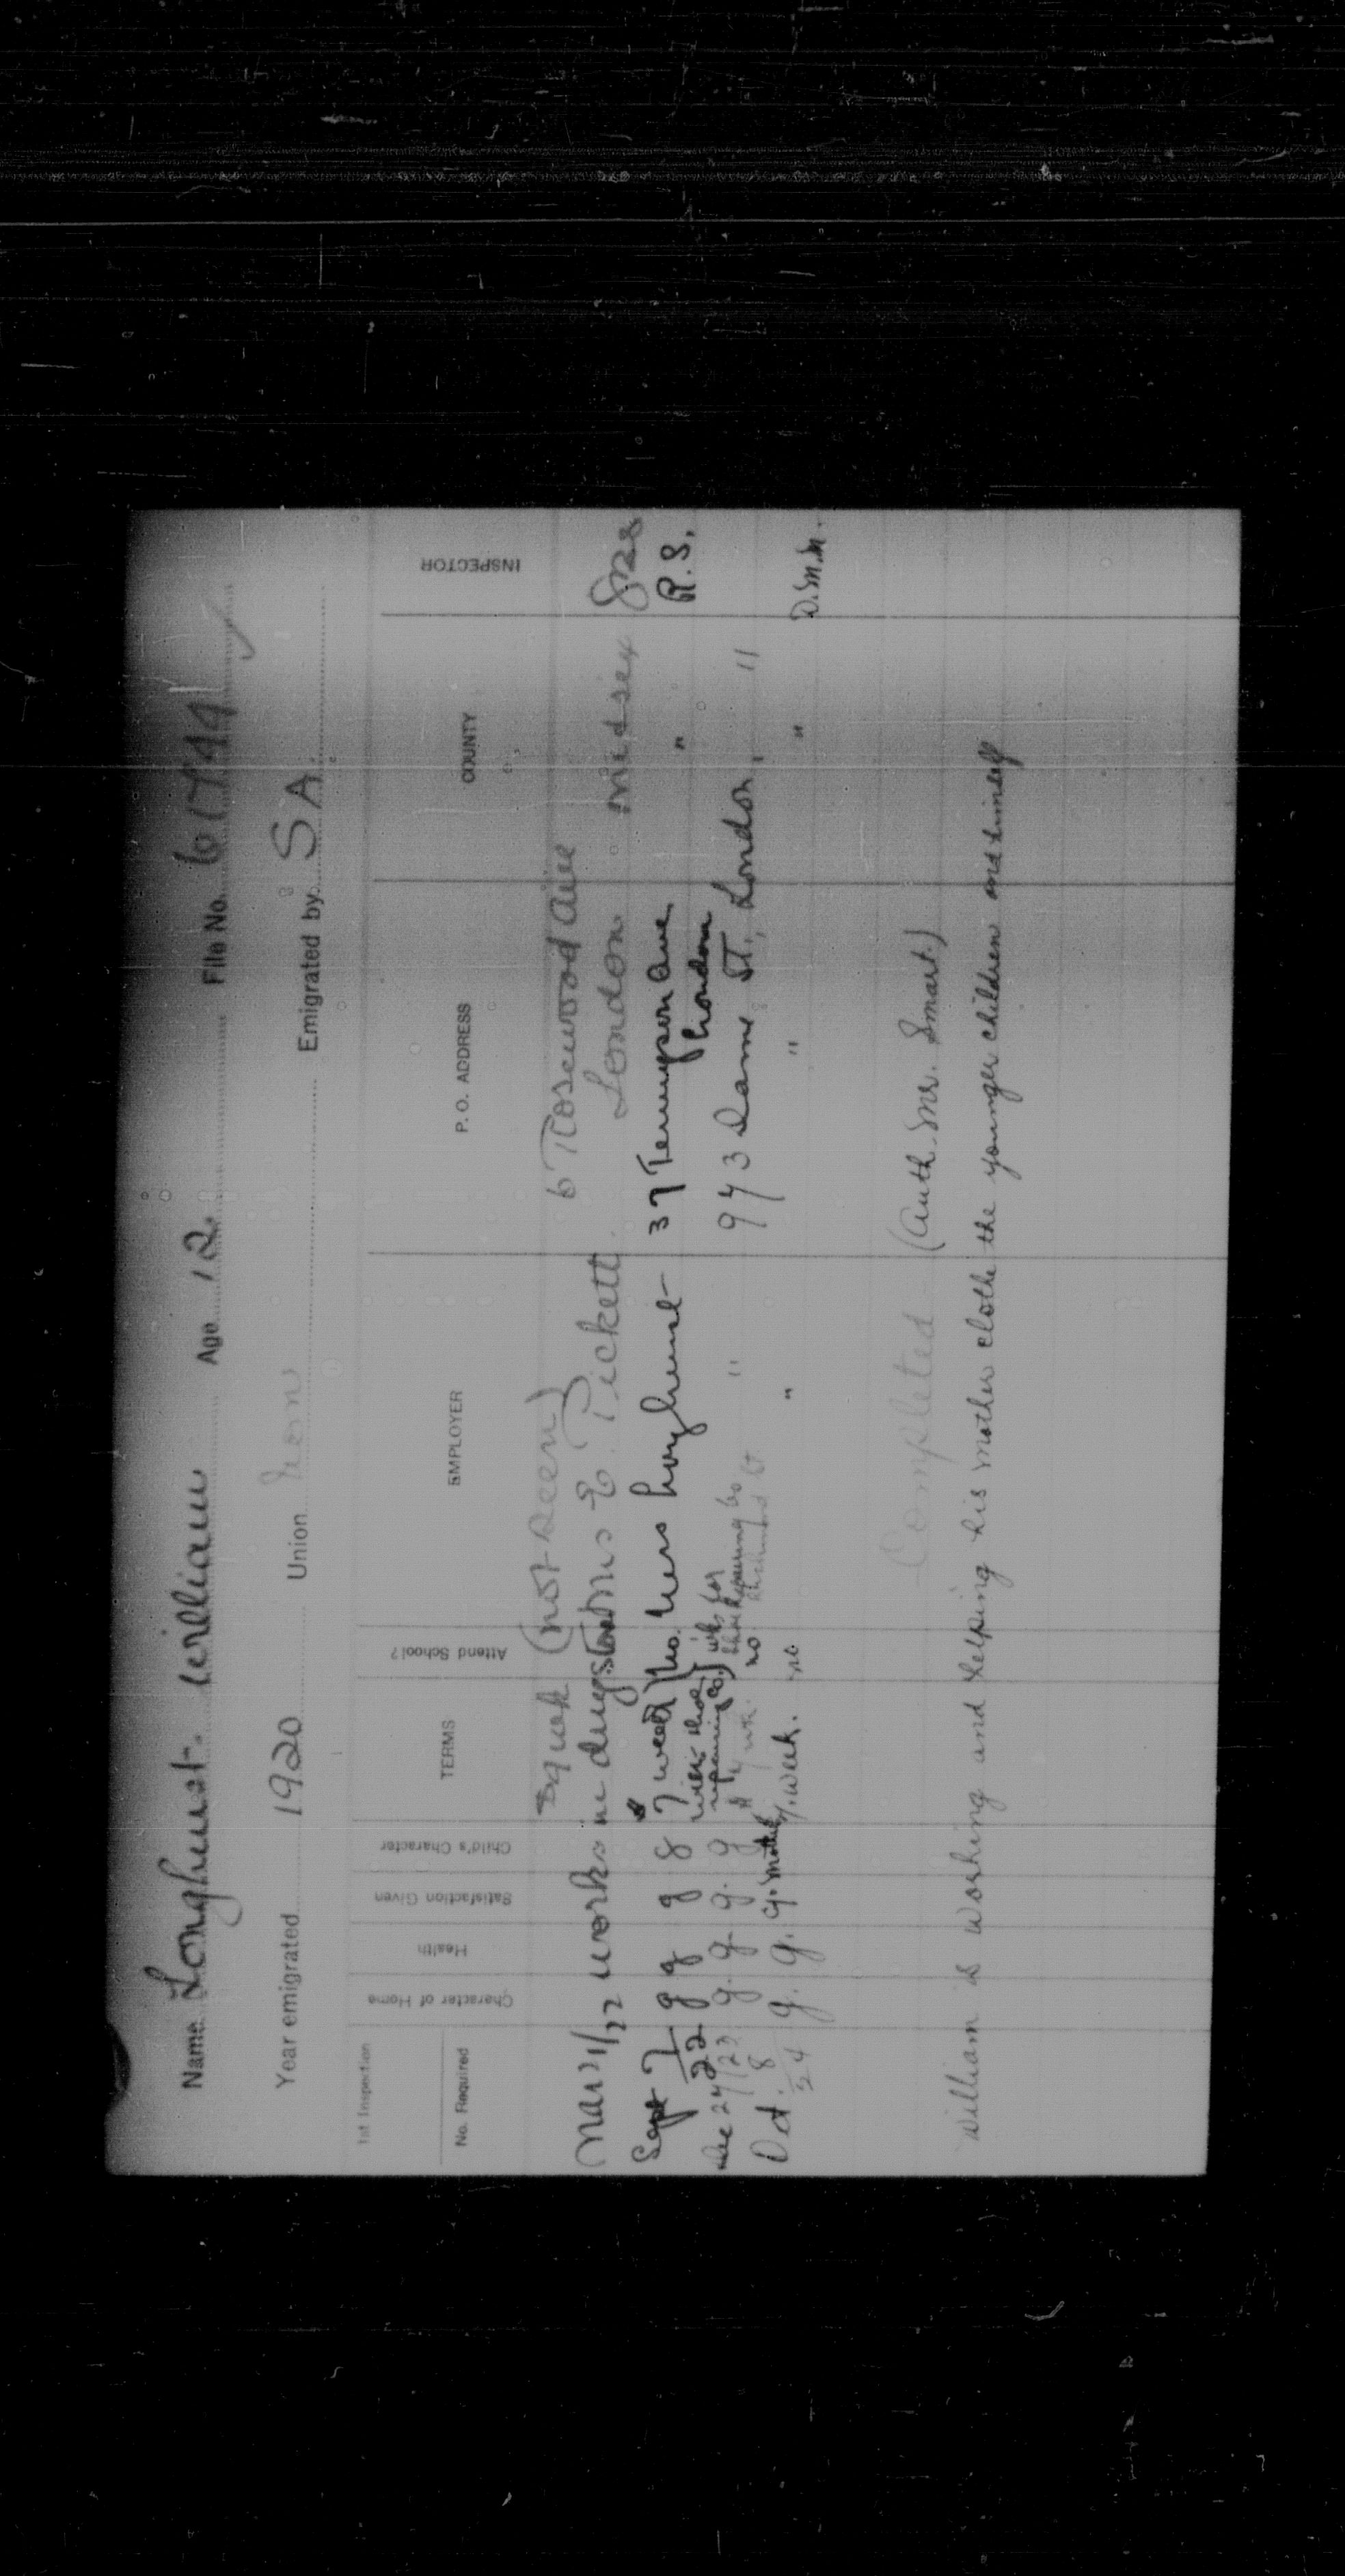 Name Longhurst. William Age 12 File No.
Year emigrated 1920 Union non Emigrated by S.A.
1st Inspection
No. Required Character of Home Health Satisfaction Given Child's Character TERMS Attend School? EMPLOYER P. O. ADDRESS COUNTY INSPECTOR
(not seen) 6 Rosewood Ave
Mar 21/22 works in drugstore Mrs E. Pickett London Midsex
Sept 7/22 g g g g 7 week No. Mrs Longhurst 37 Tennyson Ave London " R.S.
Dec 24/23 g. g. g. g no " 943 Dame St., London, "
Oct. 8/24 g. g. g. week. no. " " " D.M.M.
Completed (Auth. Mr. Smart.)
William is working and helping his mother clothe the younger children and himself